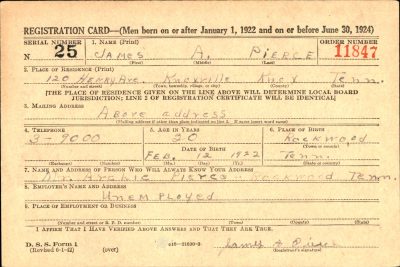 REGISTRATION CARD—(Men born on or after January 1, 1922 and on or before June 30, 1924)
SERIAL NUMBER 1. NAME (Print) ORDER NUMBER
N 25 JAMES A. PIERCE 11847
(First) (Middle) (Last)
2. PLACE OF RESIDENCE (Print)
120 Ave. Knoxville Knox Tenn.
(Number and street) (Town, township, village, or city) (County) (State)
[THE PLACE OF RESIDENCE GIVEN ON THE LINE ABOVE WILL DETERMINE LOCAL BOARD
JURISDICTION; LINE 2 OF REGISTRATION CERTIFICATE WILL BE IDENTICAL]
3. MAILING ADDRESS
Above address
[Mailing address if other than place indicated on line 2. If same insert word same]
4. TELEPHONE 5. AGE IN YEARS 6. PLACE OF BIRTH
3-9000 20 Rockwood
DATE OF BIRTH (Town or county)
FEB. 12 1922 Tenn.
(Exchange) (Number) (Mo.) (Day) (Yr.) (State or country)
7. NAME AND ADDRESS OF PERSON WHO WILL ALWAYS KNOW YOUR ADDRESS
Pierce Rockwood Tenn.
8. EMPLOYER'S NAME AND ADDRESS
Unemployed
9. PLACE OF EMPLOYMENT OR BUSINESS
(Number and street or R. F. D. number) (Town) (County) (State)
I AFFIRM THAT I HAVE VERIFIED ABOVE ANSWERS AND THAT THEY ARE TRUE.
D. S. S. Form 1 James A Pierce
(Revised 6-1-42) (over) (Registrant's signature)